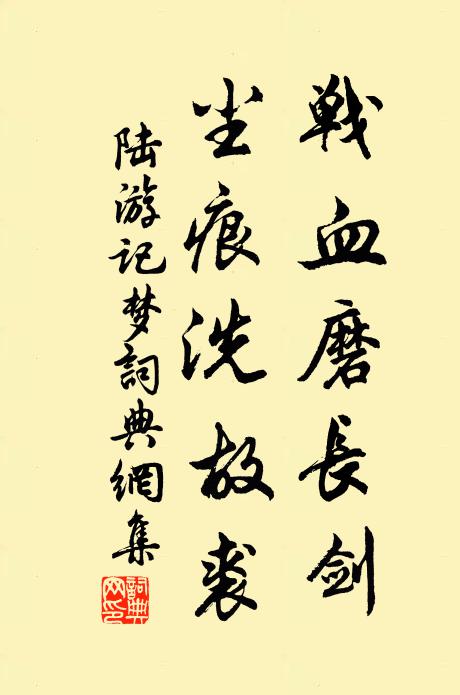 戰血磨長剑
尘痕洗故裘
陆游记梦詞典網集
詞典网印